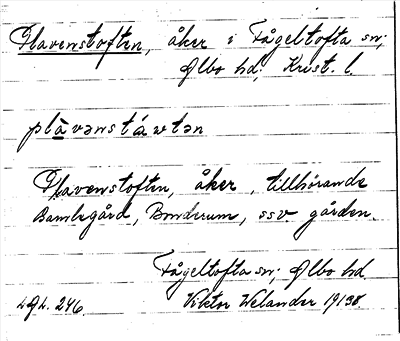 Plavenstoften, åker i Fågeltofta sn;
Albo hd; Krist. l.
plàvənstáwtən
Plavenstoften, åker, tillhörande
Bamlegård, Bonderum, ssv gården.
Fågeltofta sn; Albo hd.
246. Viktor Welander 1938